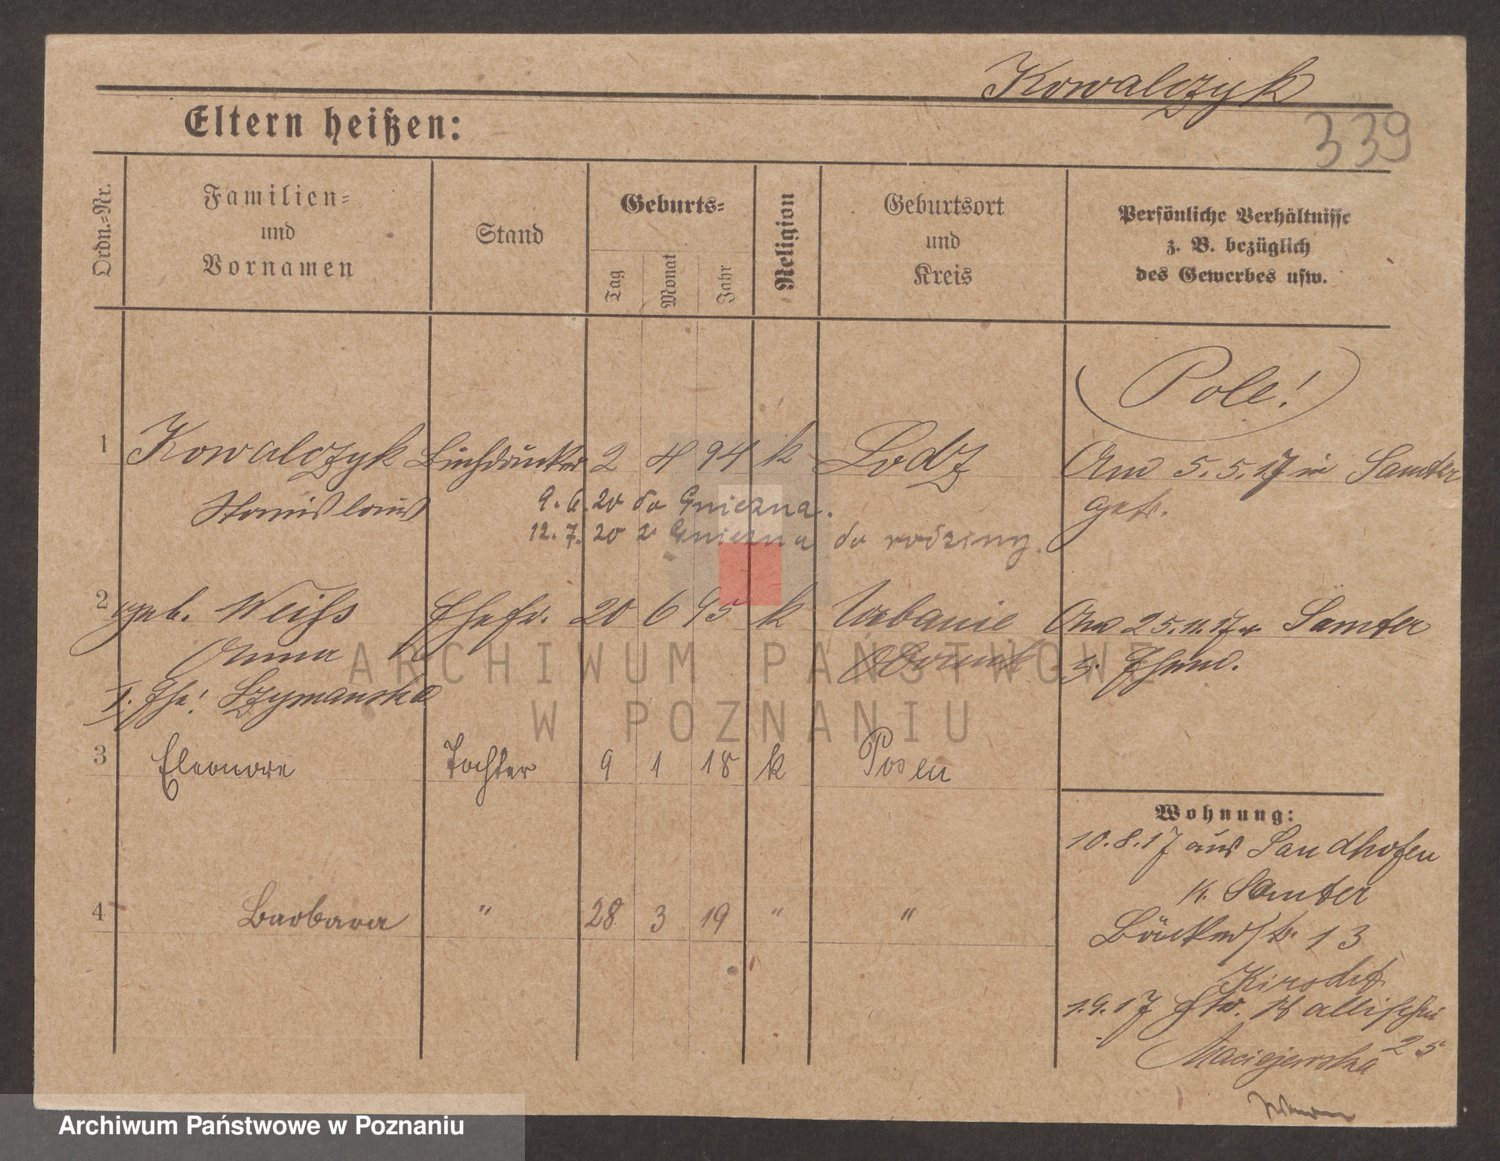 Kowalczyk
339
Eltern heißen:
Ordn.=Nr.
Familien=
und
Vornamen
Stand
Geburts=
Tag
Monat
Jahr
Religion
Geburtsort
und
Kreis
Persönliche Verhältnisse
z. B. bezüglich
des Gewerbes usw.
(Pole!)
1 Kowalczyk Buchdrucker 2 4 94 k Lodz Am 5.5.17 in Samter
Stanislaus getr.
9.6.20 do Gniezna.
12.7.20 z Gniezna do rodziny.
2 geb. Weiss Ehefr. 20 6 95 k Urbanie Am 25.11.17 Samter
Anna Obornik
I. Ehe: Szymanska
3 Eleonore Tochter 9 1 18 k Posen
Wohnung:
10.8.17 aus Sandhofen
K. Samter
4 Barbara " 28 3 19 " "
Bäckerstr. 13
1.9.17
25
Maciejewska
ARCHIWUM PAŃSTWOWE
W POZNANIU
Archiwum Państwowe w Poznaniu